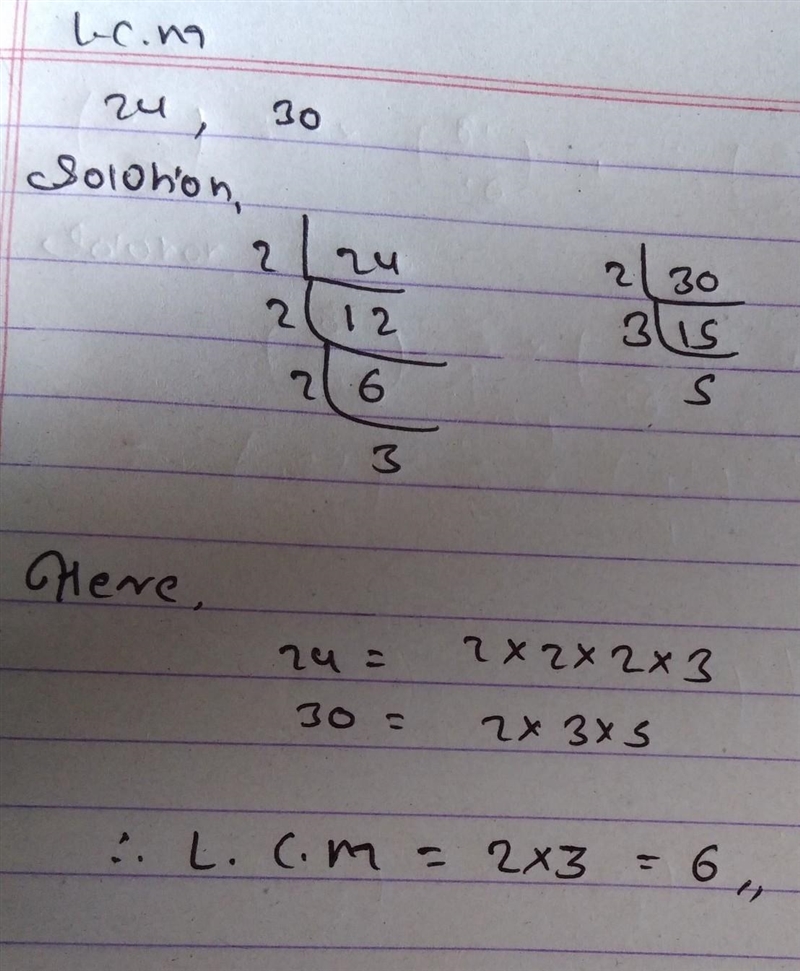 L.C.M
24, 30
Solution,
2 24 2 30
2 12 3 15
2 6 5
3
Here,
24 = 2×2×2×3
30 = 2×3×5
∴ L.C.M = 2×3 = 6,,